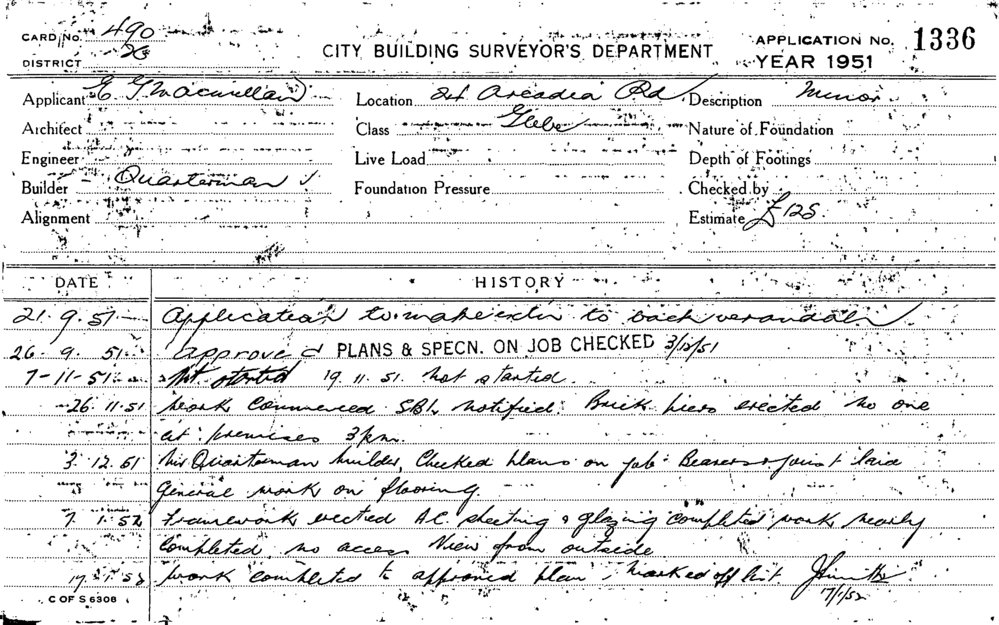 CARD No. 490
DISTRICT
CITY BUILDING SURVEYOR'S DEPARTMENT
APPLICATION No. 1336
YEAR 1951
Applicant E G Macmillan
Location 24 Arcadia Rd
Description Minor
Architect
Class Glebe
Nature of Foundation
Engineer
Live Load
Depth of Footings
Builder - Quarterman
Foundation Pressure
Checked by
Alignment
Estimate £125
DATE HISTORY
21. 9. 51 Application to make extn to back verandah
26. 9. 51. Approved PLANS & SPECN. ON JOB CHECKED 3/12/51
7-11-51 Not started 19. 11. 51. Not started
26. 11. 51 Work commenced SBI. notified. Brick piers erected no one
at premises 3 pm.
3. 12. 51 Mr Quarterman builder, Checked plans on job. Bearers & joist laid
General work on flooring.
7. 1. 52 Framework erected A.C. sheeting & glazing completed work nearly
completed. no access View from outside
17. 1. 52 Work completed to approved plan, marked off list JSmith
7/1/52
C OF S 6308